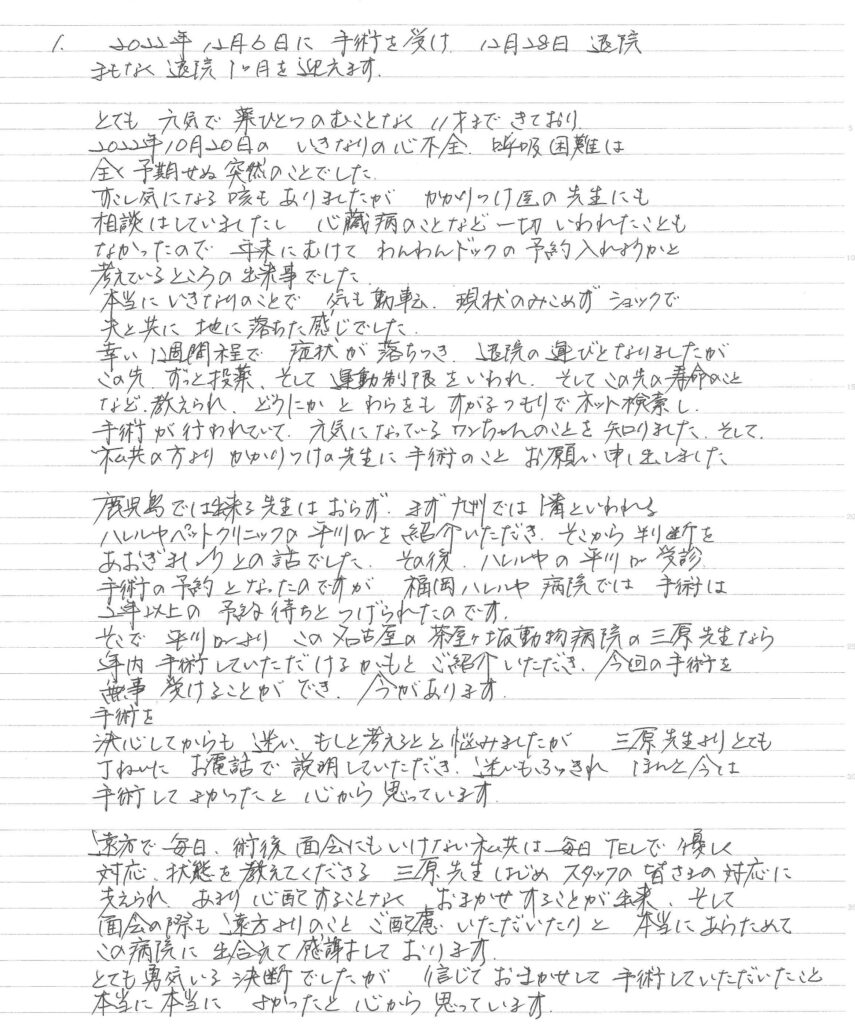 1. 2022年12月6日に 手術を受け 12月28日 退院
まもなく退院1ヶ月を迎えます。
とても 元気で 薬ひとつのむことなく 11才まで きており
2022年10月20日の いきなりの心不全、呼吸困難は
全く予期せぬ突然のことでした。
すこし気になる咳もありましたが かかりつけ医の先生にも
相談はしていましたし 心臓病のことなど一切いわれたことも
なかったので 年末にむけて わんわんドックの予約入れようかと
考えているところの出来事でした
本当にいきなりのことで 気も動転、現状のみこめず ショックで
夫と共に 地に落ちた感じでした。
幸い 1週間程で 症状が落ちつき、退院の運びとなりましたが
この先、ずっと投薬、そして 運動制限をいわれ、そしてこの先の寿命のこと
など、教えられ、どうにか と わらをも すがるつもりでネット検索し、
手術が行われていて、元気になっているワンちゃんのことを知りました、そして、
私共の方より かかりつけの先生に手術のこと お願い申し出しました
鹿児島では出来る先生はおらず、まず九州では 1番といわれる
ハレルヤペットクリニックの平川Drを紹介いただき、そこから判断を
あおぎましょうとの話でした、その後、ハレルヤの平川Dr受診
手術の予約となったのですが 福岡ハレルヤ病院では 手術は
2年以上の 予約待ちと つげられたのです。
そこで 平川Drより この名古屋の茶屋ヶ坂動物病院の三原先生なら
年内 手術していただけるかもと ご紹介いただき、今回の手術を
無事 受けることができ、今があります。
手術を
決心してからも 迷い、もしと考えるとと悩みましたが 三原先生よりとても
丁ねいに お電話で説明していただき、迷いもふっきれ ほんと今は
手術して よかったと 心から 思っています。
遠方で毎日、術後 面会にもいけない私共は毎日 TELで 優しく
対応、状態を教えてくださる 三原先生はじめ スタッフの皆さまの対応に
支えられ、あまり心配することなく おまかせすることが出来、そして
面会の際も 遠方よりのこと ご配慮いただいたりと 本当にあらためて
この病院に出合えて感謝しております。
とても勇気いる決断でしたが 信じて おまかせして 手術していただいたこと
本当に本当に よかったと 心から 思っています。